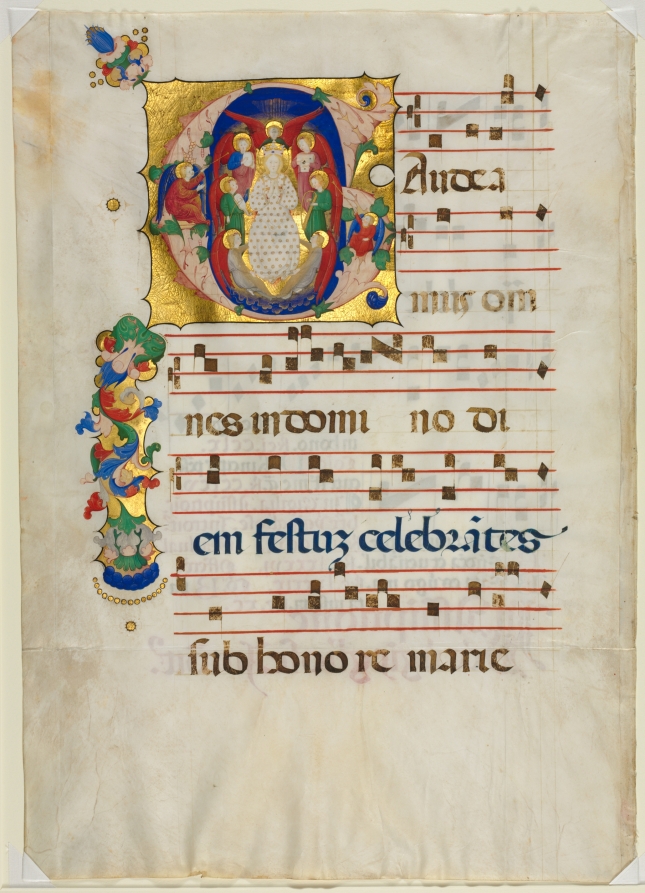 Gaudea
mus om
nes in domi no di
em festuz celebrātes
sub hono re marie